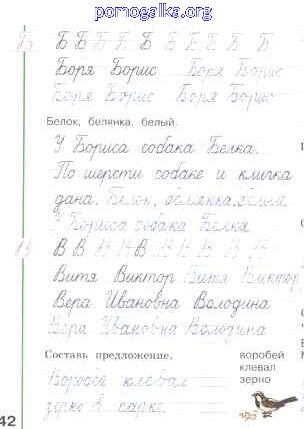 pomogalka.org
Б Б Б Б Б Б Б Б Б Б Б
Боря Борис Боря Борис
Боря Борис Боря Борис
Белок, белянка, белый.
У Бориса собака Белка.
По шерсти собаке и кличка
дана. Белок, белянка, белый
У Бориса собака Белка
В В В В В В В В В В В
Витя Виктор Витя Виктор
Вера Ивановна Володина
Вера Ивановна Володина
Составь предложение. воробей
клевал
Воробей клевал зерно
зерно в парке.
42